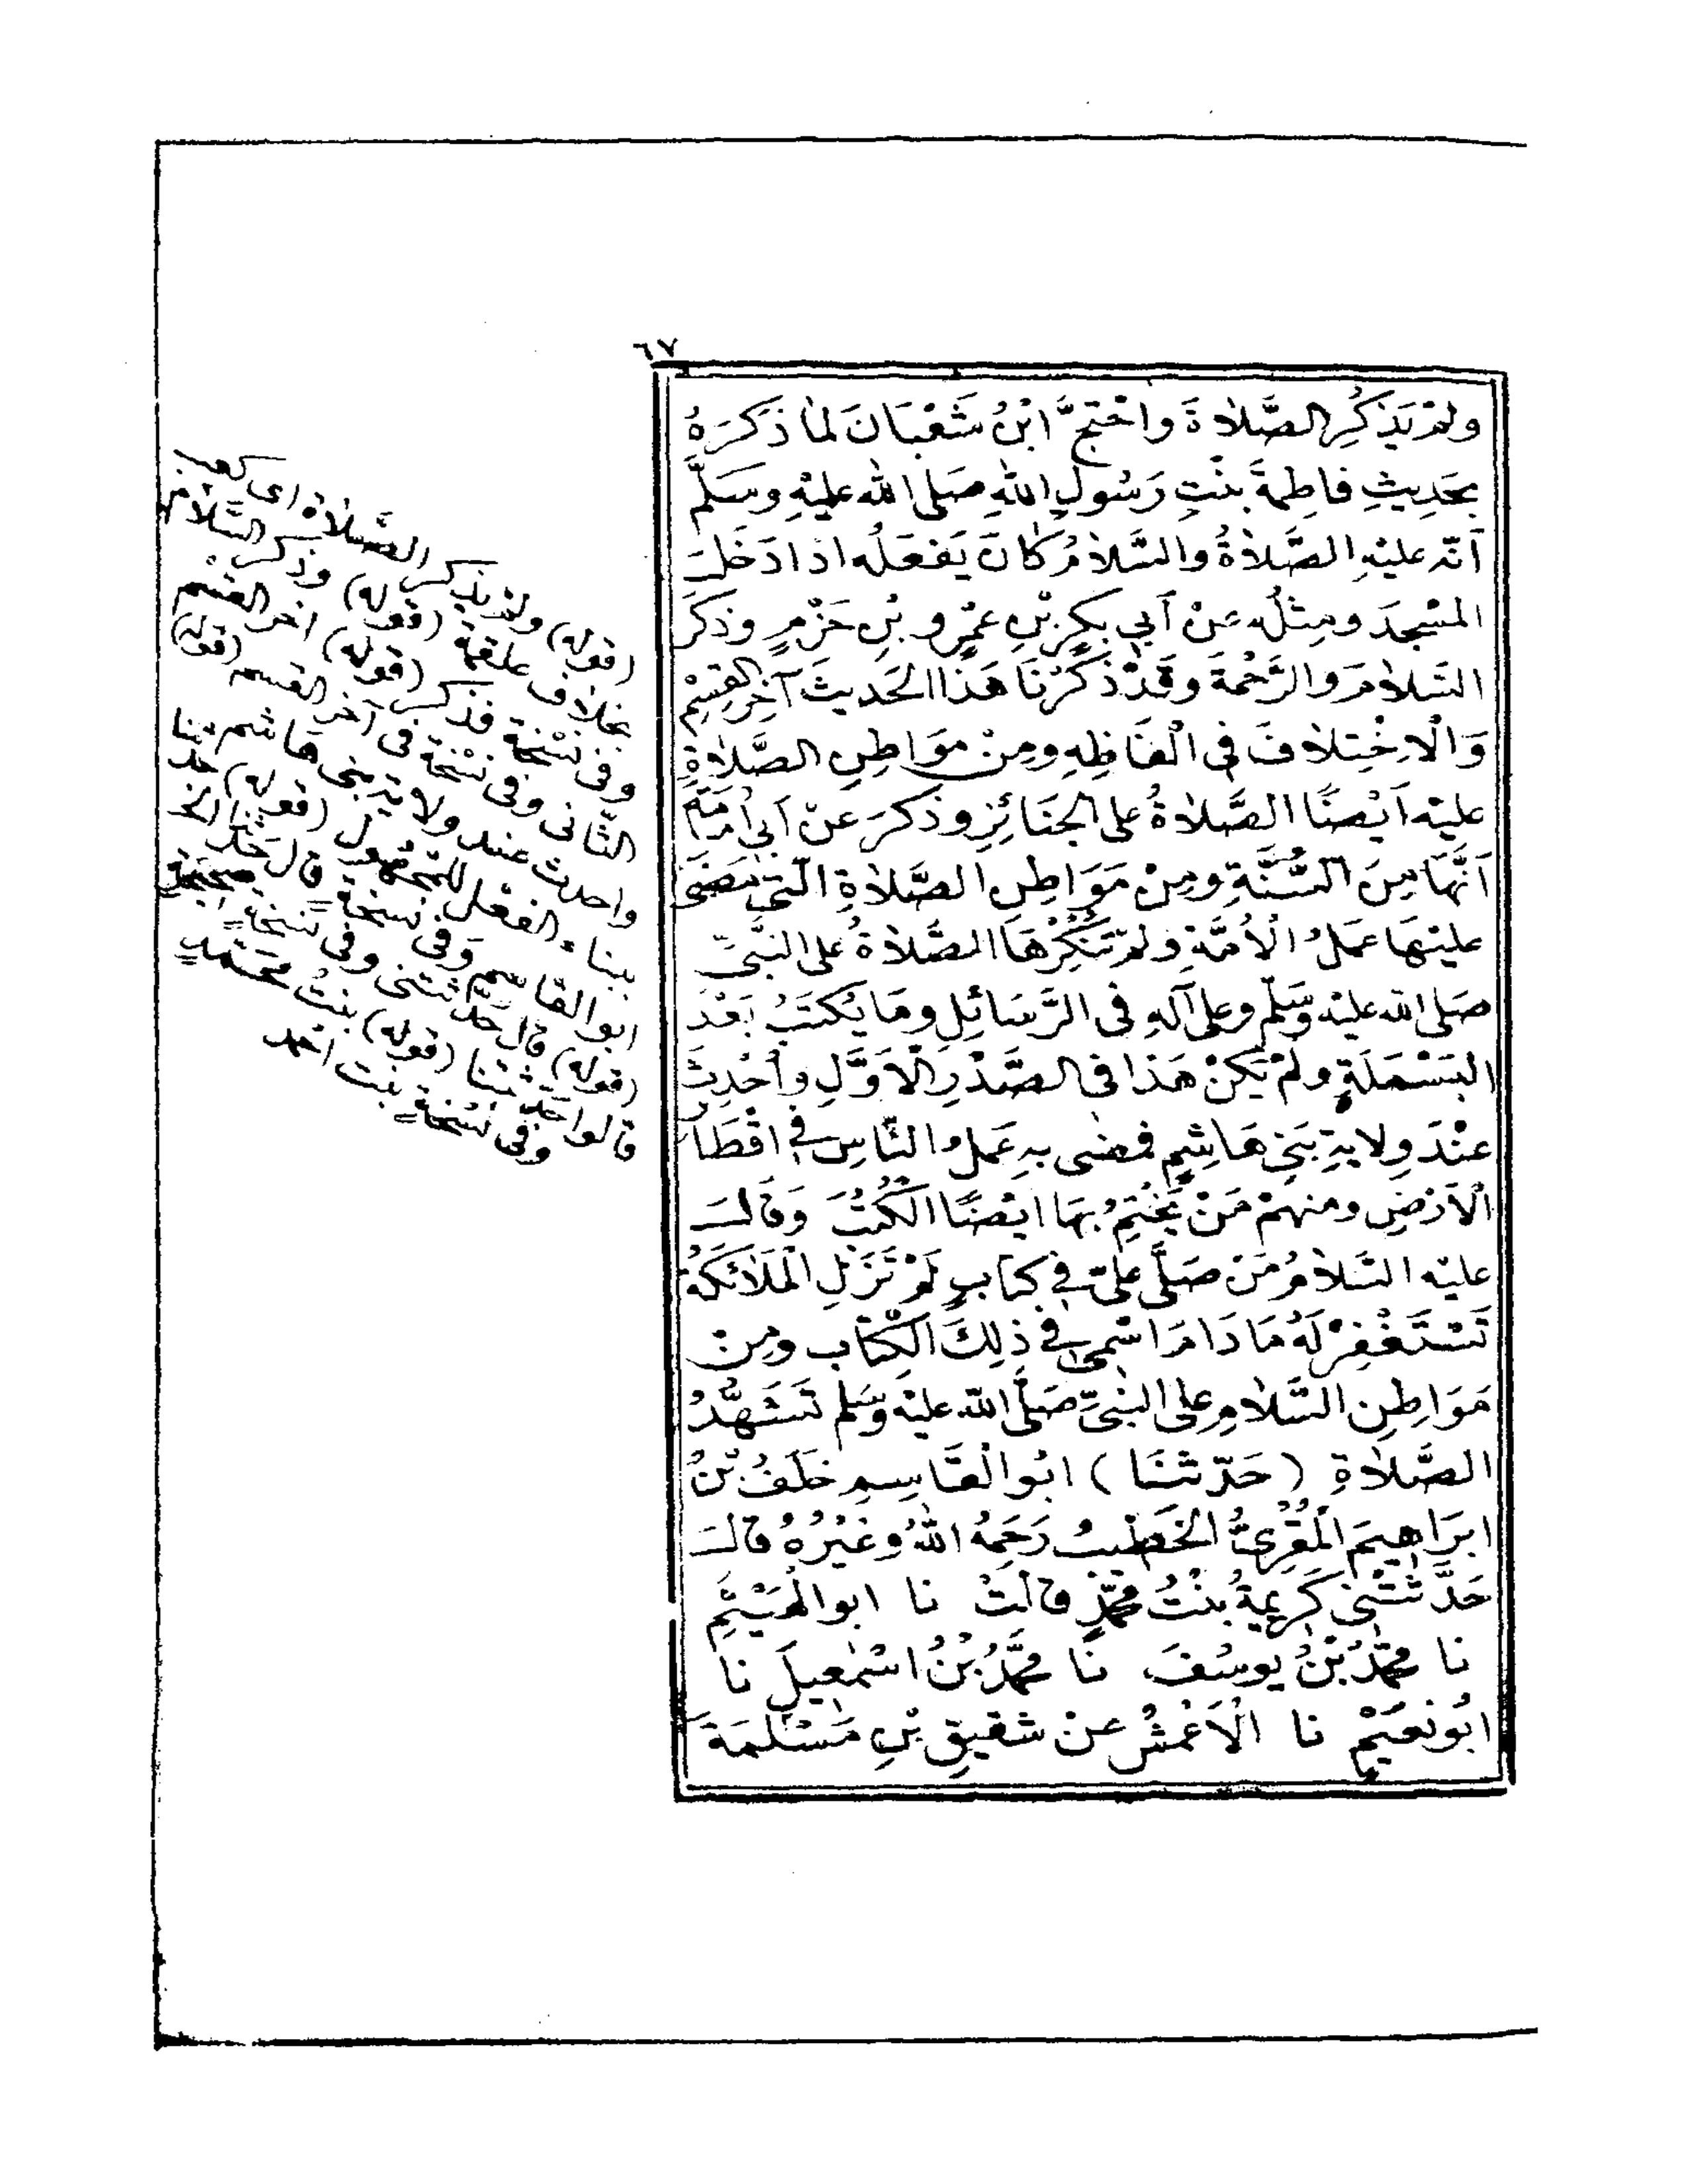 ٦٧
ولَمْ يَذْكُرِ الصَّلاةَ واحْتَجَّ ابْنُ شَعْبَانَ لِمَا ذَكَرَهُ
بِحَدِيثِ فاطِمَةَ بِنْتِ رَسُولِ اللهِ صَلى الله عليْهِ وسَلَّمَ
أنّه عليْهِ الصَّلاةُ والسَّلامُ كانَ يَفْعَلُه اذا دَخَلَ
المَسْجِدَ ومِثْلُه عَنْ أبي بكرِ بْنِ عَمْرِو بْنِ حَزْمٍ وذكَرَ
السَّلامَ والرَّحْمَةَ وقَدْ ذَكَرْنَا هَذا الحَديثَ آخِرَ القِسْمِ
وَالْاِخْتِلافَ فى الْفَاظِهِ ومِنْ مَوَاطِنِ الصَّلاةِ
عليْهِ اَيْضًا الصَّلاةُ على الجَنَائِزِ وذكَرَ عَنْ اَبى اُمَامَةَ
اَنَّهَا مِنَ السُّنَّةِ ومِنْ مَوَاطِنِ الصَّلاةِ الّتى مَضَى
عليْهَا عَمَلُ الْاُمَّةِ ولمْ تُنْكِرْهَا الصَّلاةُ على النَّبىِّ
صَلى الله عليْه وسَلّم وعلى آلِهِ فى الرَّسَائِلِ ومَا يُكتَبُ بَعْدَ
البَسْمَلَةِ ولمْ يَكُنْ هَذا فى الصَّدْرِ الْاَوَّلِ واُحْدِثَ
عِنْدَ وِلايَةِ بَنى هَاشِمٍ فمضى بهِ عَمَلُ النّاسِ فى اقْطَارِ
الْاَرْضِ ومنهمْ مَنْ يَخْتِمُ بِهَا ايْضًا الْكُتُبَ وَقَالَ
عليْه السَّلامُ مَنْ صَلَّى عليّ فى كتابٍ لَمْ تَزَلِ الْمَلَائكَةُ
تَسْتَغْفِرُ لَهُ مَا دَامَ اسْمى فى ذلِكَ الْكِتابِ ومِنْ
مَوَاطِنِ السَّلامِ على النَّبىِّ صَلَّى الله عليْه وسَلم تَشَهُّدُ
الصَّلاةِ ( حَدّثنَا ) ابُو الْقَاسِمِ خَلَفُ بْنُ
ابرَاهيمَ الْمُقْرِئُ الخَطيبُ رَحِمَهُ اللهُ وغَيْرُهُ قالَ
حَدَّثَتْنى كَريمَةُ بنْتُ محمّدٍ قالتْ نا ابو الهَيْثَمِ
نا محمّدُ بْنُ يوسُفَ نا محمّدُ بْنُ اسْمعيلَ نا
ابُو نعَيْمٍ نا الْاَعْمَشُ عنْ شقيقِ بْنِ مَسْلَمَةَ
(قوله) ولم يذكر الصَّلاة اى كعب
بخلاف علقمة (قوله) وذكر السَّلام
وفى نسْخة فذكر (قوله) اخر القسْم
الثّانى وفى نسْخة فى آخر القسم (قوله)
واحدث عند ولاية بنى هاشم ببنا
بناء الفعْل للمجْهول (قوله) حد
ابو القاسم وفى نسخةٍ قال حَدّثنا الخ
(قوله) قال حَدّثتنى وفى نسْخةٍ صحيحةٍ
قالوا حدّثتنا (قوله) بنتُ محمّدٍ
وفى نسْخةٍ بنت احمد